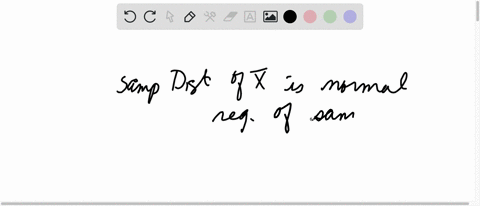 Samp Dist of X̄ is normal
reg. of sam